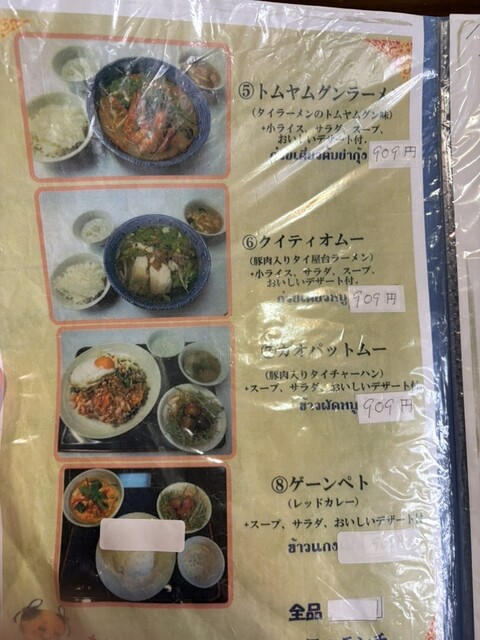 ⑤トムヤムグンラーメ
(タイラーメンのトムヤムグン味)
+小ライス、サラダ、スープ、
おいしいデザート付。
ก๋วยเตี๋ยวต้มยำกุ้ง 909円
⑥クイティオムー
(豚肉入りタイ屋台ラーメン)
+小ライス、サラダ、スープ、
おいしいデザート付。
ก๋วยเตี๋ยวหมู 909円
カオパットムー
(豚肉入りタイチャーハン)
+スープ、サラダ、おいしいデザート付
ข้าวผัดหมู 909円
⑧ゲーンペト
(レッドカレー)
+スープ、サラダ、おいしいデザート付
ข้าวแกง
全品